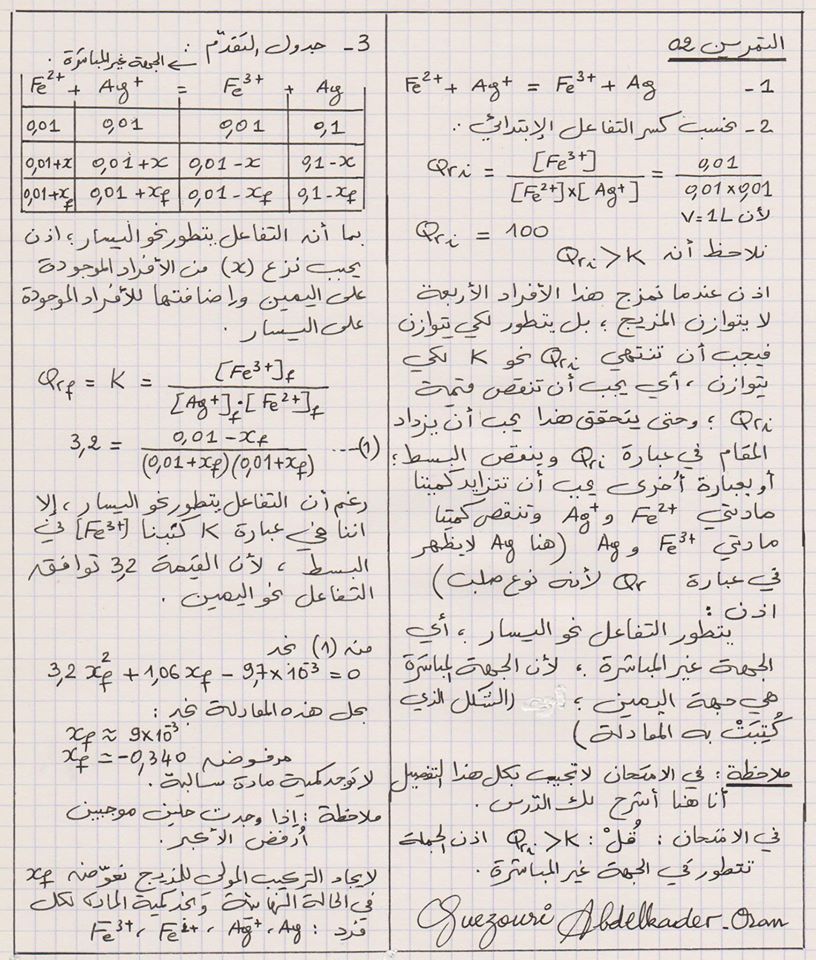 التمرين 02
1- Fe²⁺ + Ag⁺ = Fe³⁺ + Ag
2- نحسب كسر التفاعل الإبتدائي :
Qri = [Fe³⁺] / [Fe²⁺]×[Ag⁺] = 0,01 / 0,01×0,01
لأن V = 1L
Qri = 100
نلاحظ أنه Qri > K
اذن عندما نمزج هذا الأفراد الأربعة
لا يتوازن المزيج ؛ بل يتطور لكي يتوازن
فيجب أن تنتهي Qri نحو K لكي
يتوازن ، أي يجب أن تنقص قيمة
Qri ؛ وحتى يتحقق هذا يجب أن يزداد
المقام في عبارة Qri وينقص البسط ؛
أو بعبارة أخرى يجب أن تتزايد كميتا
مادتي Fe²⁺ و Ag⁺ وتنقص كميتا
مادتي Fe³⁺ و Ag (هنا Ag لا يظهر
في عبارة Qr لأنه نوع صلب)
اذن :
يتطور التفاعل نحو اليسار ؛ أي
الجهة غير المباشرة ؛ لأن الجهة المباشرة
هي جهة اليمين ؛ (الشكل الذي
كُتِبَتْ به المعادلة)
ملاحظة : في الامتحان لا تجيب بكل هذا التفصيل
أنا هنا أشرح لك الدرس .
في الامتحان : قُلْ : Qri > K اذن الجملة
تتطور في الجهة غير المباشرة .
Guezouri Abdelkader - Oran
3- جدول التقدّم : في الجهة غير المباشرة .
Fe²⁺ + Ag⁺ = Fe³⁺ + Ag
0,01 0,01 0,01 0,1
0,01+x 0,01+x 0,01-x 0,1-x
0,01+xf 0,01+xf 0,01-xf 0,1-xf
بما أنه التفاعل يتطور نحو اليسار ؛ اذن
يجب نزع (x) من الأفراد الموجودة
على اليمين وإضافتها للأفراد الموجودة
على اليسار .
Qrf = K = [Fe³⁺]f / [Ag⁺]f·[Fe²⁺]f
3,2 = 0,01-xf / (0,01+xf)(0,01+xf) ---(1)
رغم أن التفاعل يتطور نحو اليسار ، إلا
اننا في عبارة K كتبنا [Fe³⁺] في
البسط ، لأن القيمة 3,2 توافق
التفاعل نحو اليمين .
منه (1) نجد
3,2 xf² + 1,06 xf - 9,7×10⁻³ = 0
بحل هذه المعادلة نجد :
xf ≈ 9×10⁻³
xf = -0,340 مرفوضه
لا توجد كمية مادة سالبة .
ملاحظة : إذا وجدت حلين موجبين
أرفض الأكبر .
لإيجاد التركيب المولي للمزيج نعوّضه xf
في الحالة النهائية ونجد كمية المادة لكل
فرد : Fe³⁺ ، Fe²⁺ ، Ag⁺ ، Ag